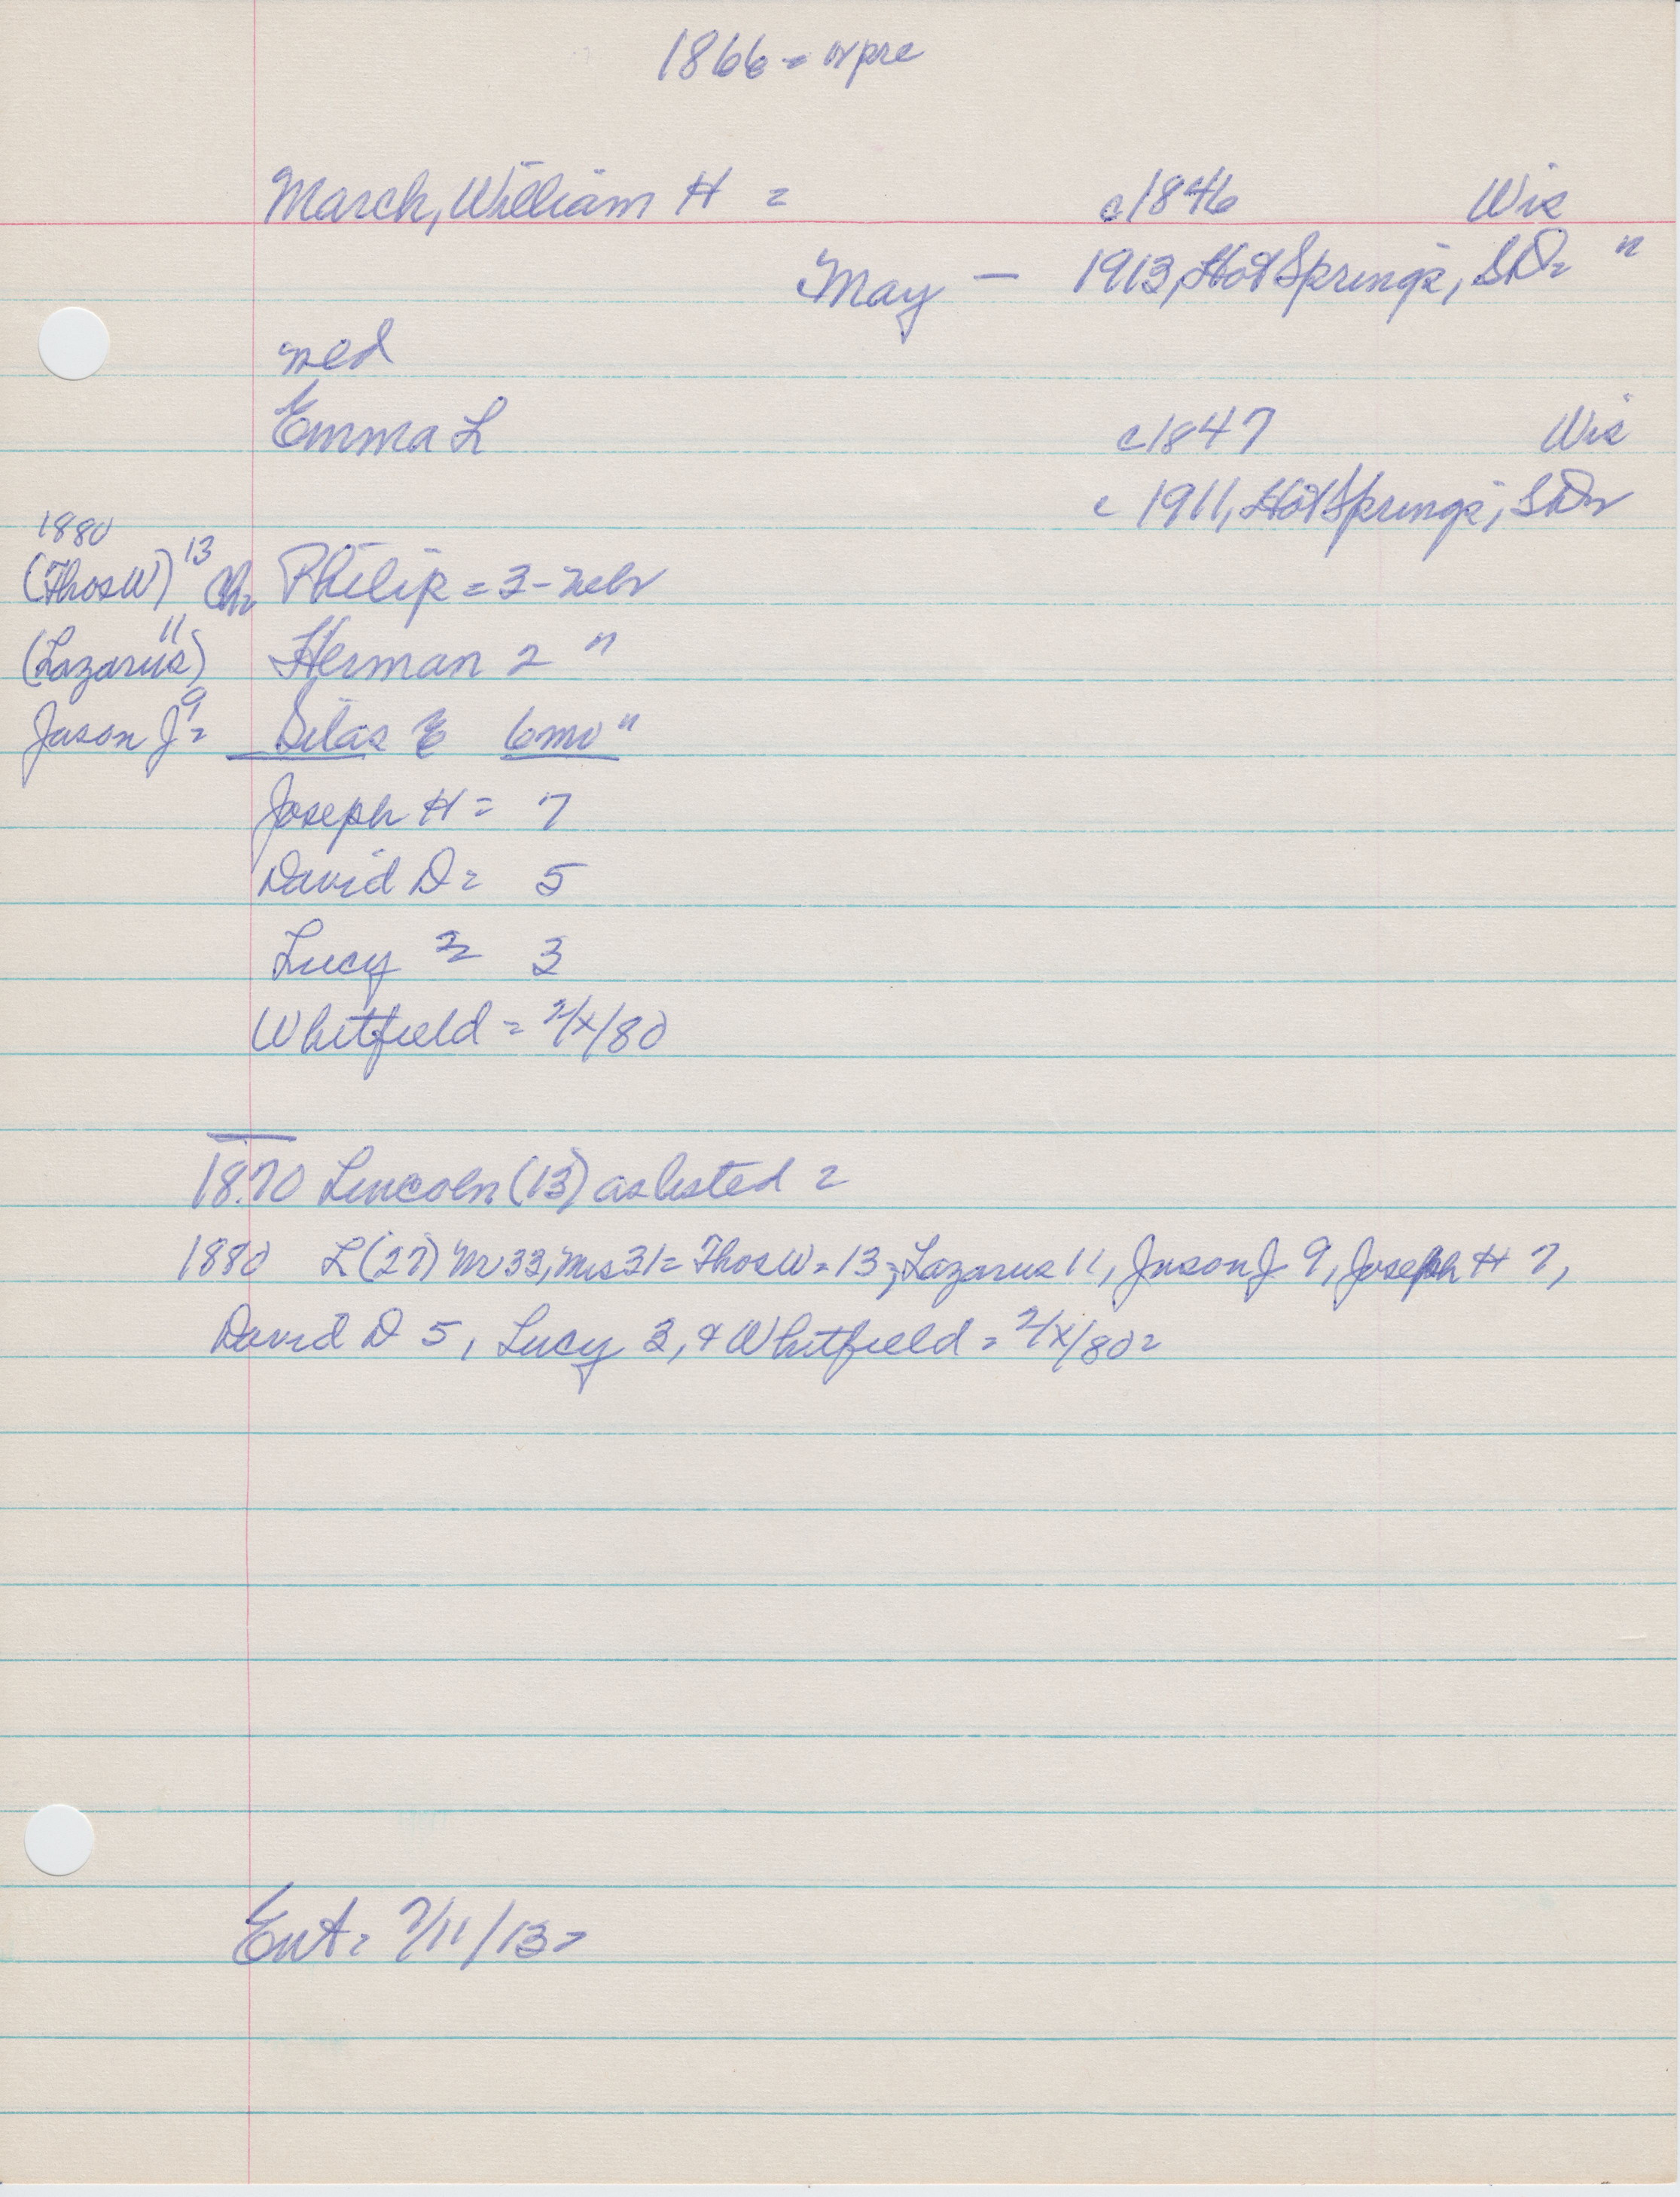 1866 = or pre
March, William H = c1846 Wis
May — 1913, Hot Springs, SD= "
med
Emma L c1847 Wis
c 1911, Hot Springs, SD=
1880
(Thos W) 13 Ch= Philip = 3 - Nebr
(Lazarus) 11 Herman 2 "
Jason J = 9 Silas E 6mo "
Joseph H = 7
David D = 5
Lucy = 3
Whitfield = 2/x/80
1870 Lincoln (13) as listed =
1880 L (27) Mr 33, Mrs 31 = Thos W = 13, Lazarus 11, Jason J 9, Joseph H 7,
David D 5, Lucy 3, & Whitfield = 2/x/80 =
Ent = 7/11/13 =